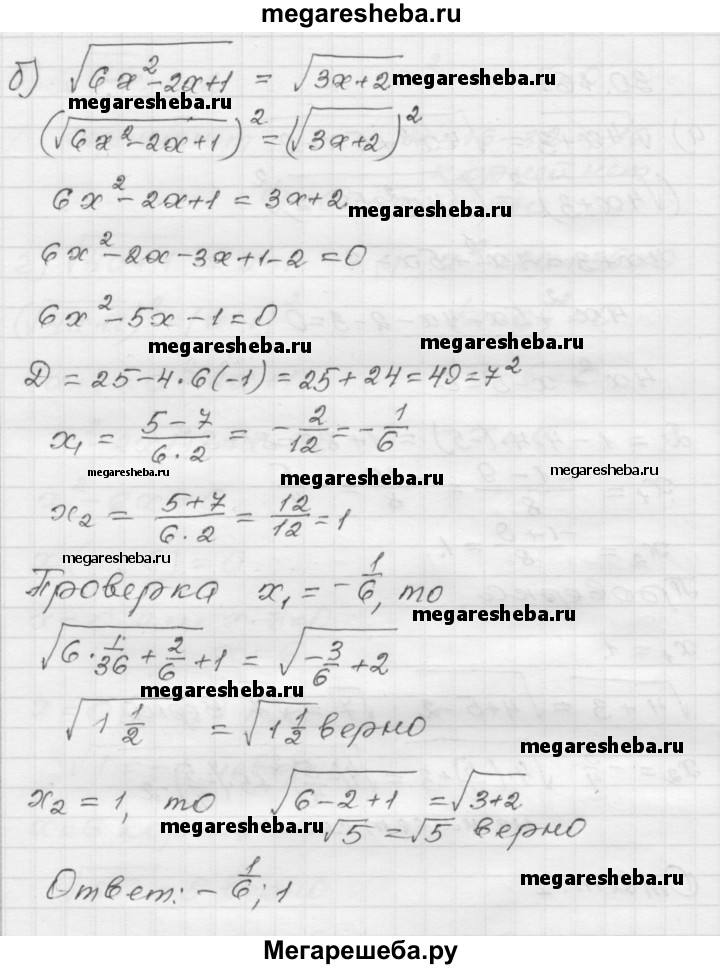 megaresheba.ru
б) √(6x²-2x+1) = √(3x+2) megaresheba.ru
megaresheba.ru
(√(6x²-2x+1))² = (√(3x+2))²
6x²-2x+1 = 3x+2
megaresheba.ru
6x²-2x-3x+1-2=0
6x²-5x-1=0
megaresheba.ru megaresheba.ru
D = 25-4·6(-1) = 25+24=49=7²
x₁ = (5-7)/(6·2) = -2/12 = -1/6
megaresheba.ru megaresheba.ru
x₂ = (5+7)/(6·2) = 12/12 = 1
megaresheba.ru
Проверка x₁ = -1/6, то
megaresheba.ru
√(6·1/36+2/6+1) = √(-3/6+2)
megaresheba.ru
√(1 1/2) = √(1 1/2) верно
megaresheba.ru
x₂ = 1, то √(6-2+1) = √(3+2)
megaresheba.ru √5 = √5 верно
megaresheba.ru
Ответ: -1/6; 1
Мегарешеба.ру